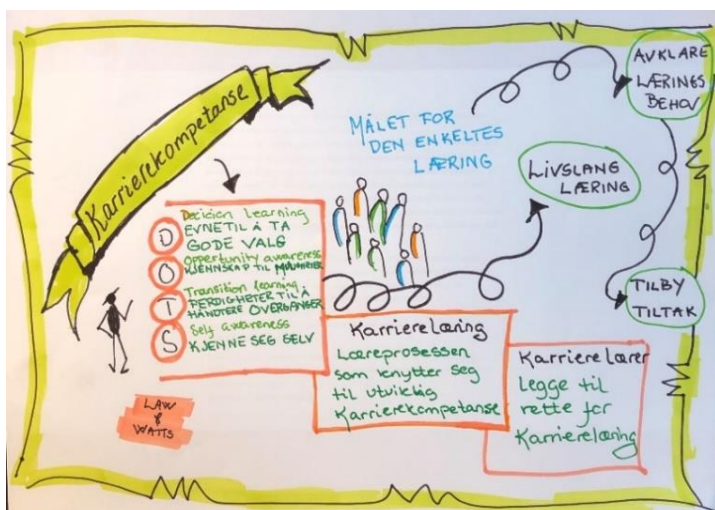 Karrierekompetanse
D
O
T
S
Decision Learning
EVNE TIL Å TA
GODE VALG
Opportunity awareness
KJENNSKAP TIL MULIGHETER
Transition learning
FERDIGHETER TIL Å
HÅNDTERE OVERGANGER
Self awareness
KJENNE SEG SELV
LAW
&
WATTS
MÅLET FOR
DEN ENKELTES
LÆRING
LIVSLANG
LÆRING
AVKLARE
LÆRINGS
BEHOV
TILBY
TILTAK
Karrierelæring
Læreprosessen
som knytter seg
til utviklig
Karrierekompetanse
Karrierelærer
Legge til
rette for
Karrierelæring